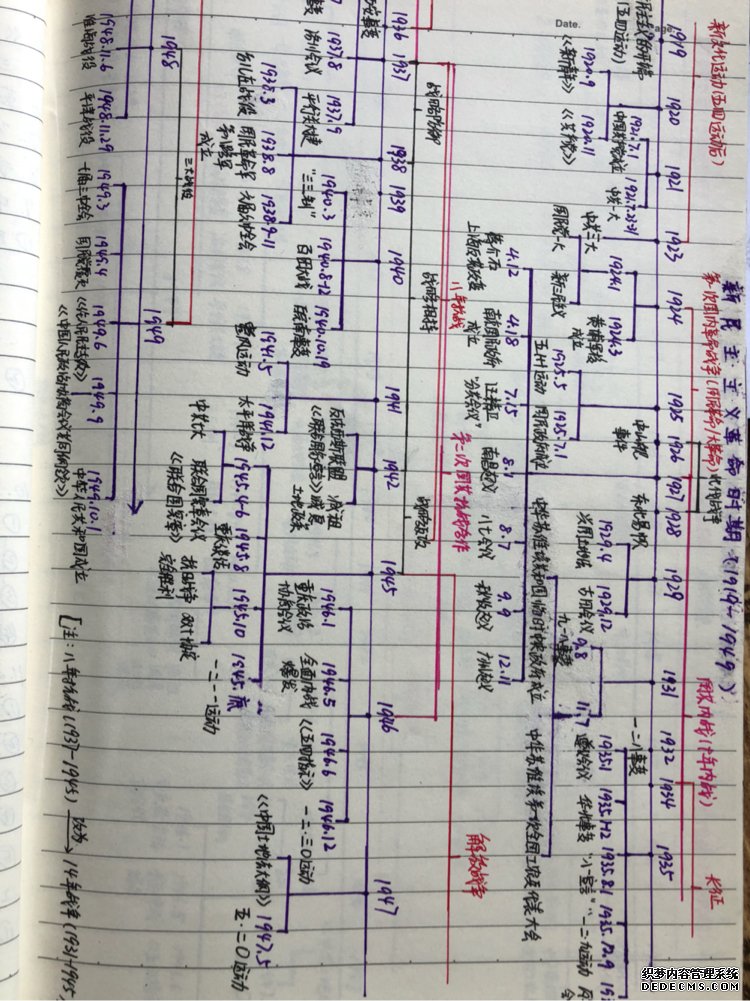 新民主主义革命时期(1919-1949)
新文化运动(五四运动后)
第一次国内革命战争(国民革命/大革命)
国共内战(十年内战)
长征
1919
1920
1921
1923
1924
1925
1926
1927
1928
1929
1931
1932
1934
1935
(五四运动)
1920.9
《新青年》
1920.11
1921.7.1
中国共产党成立
中共一大
中共三大
国民党一大
1924.1
新三民主义
1924.3
黄埔军校
成立
1925.5
五卅运动
1925.7.1
国民政府成立
中山舰
事件
东北易帜
1929.4
兴国土地法
1929.12
古田会议
九一八事变
9.8
11.7
一二八事变
1935.1
遵义会议
华北事变
1935.8.1
“八一宣言”
1935.12.9
一二九运动
4.12
蒋介石
上海反革命政变
4.18
南京国民政府
成立
7.15
汪精卫
“分共会议”
8.1
南昌起义
8.7
八七会议
9.9
秋收起义
12.11
广州起义
中华苏维埃共和国临时中央政府成立
中华苏维埃第一次全国工农兵代表大会
八年抗战
第二次国共抗战合作
解放战争
战略防御
战略相持
战略反攻
1936
1937
1938
1939
1940
1941
1942
1945
1946
1947
1937.8
洛川会议
1937.9
平型关大捷
1938.3
台儿庄战役
1938.8
1938.9-11
六届六中全会
1940.3
“三三制”
1940.8-12
百团大战
1940.10.19
皖南事变
1941.5
整风运动
1941.12
太平洋战争
反法西斯联盟
《联合国家宣言》
减租
减息
土地政策
1945.4-6
中共七大
联合国制宪会议
《联合国宪章》
1945.8
重庆谈判
抗日战争
完全胜利
1945.10
双十协定
1945.底
一二·一运动
1946.1
重庆政治
协商会议
1946.5
全面内战
爆发
1946.6
《五四指示》
1946.12
一二·三〇运动
《中国土地法大纲》
1947.5
五·二〇运动
1948
1949
三大战役
1948.11.6
淮海战役
1948.11.29
平津战役
1949.3
七届二中全会
1945.4
国民党覆灭
1949.6
1949.9
《中国人民政治协商会议共同纲领》
1949.10.1
中华人民共和国成立
[注:八年抗战(1937-1945) 改为 14年战争(1931-1945)
Date.
Page
织梦内容管理系统
DEDECMS.COM